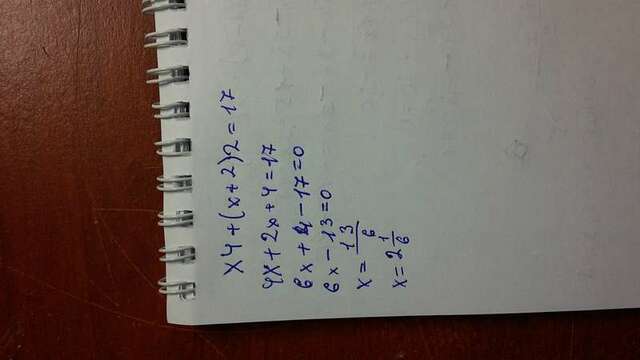 x4+(x+2)2=17
4x+2x+4=17
6x+4-17=0
6x-13=0
x=13/6
x=2 1/6